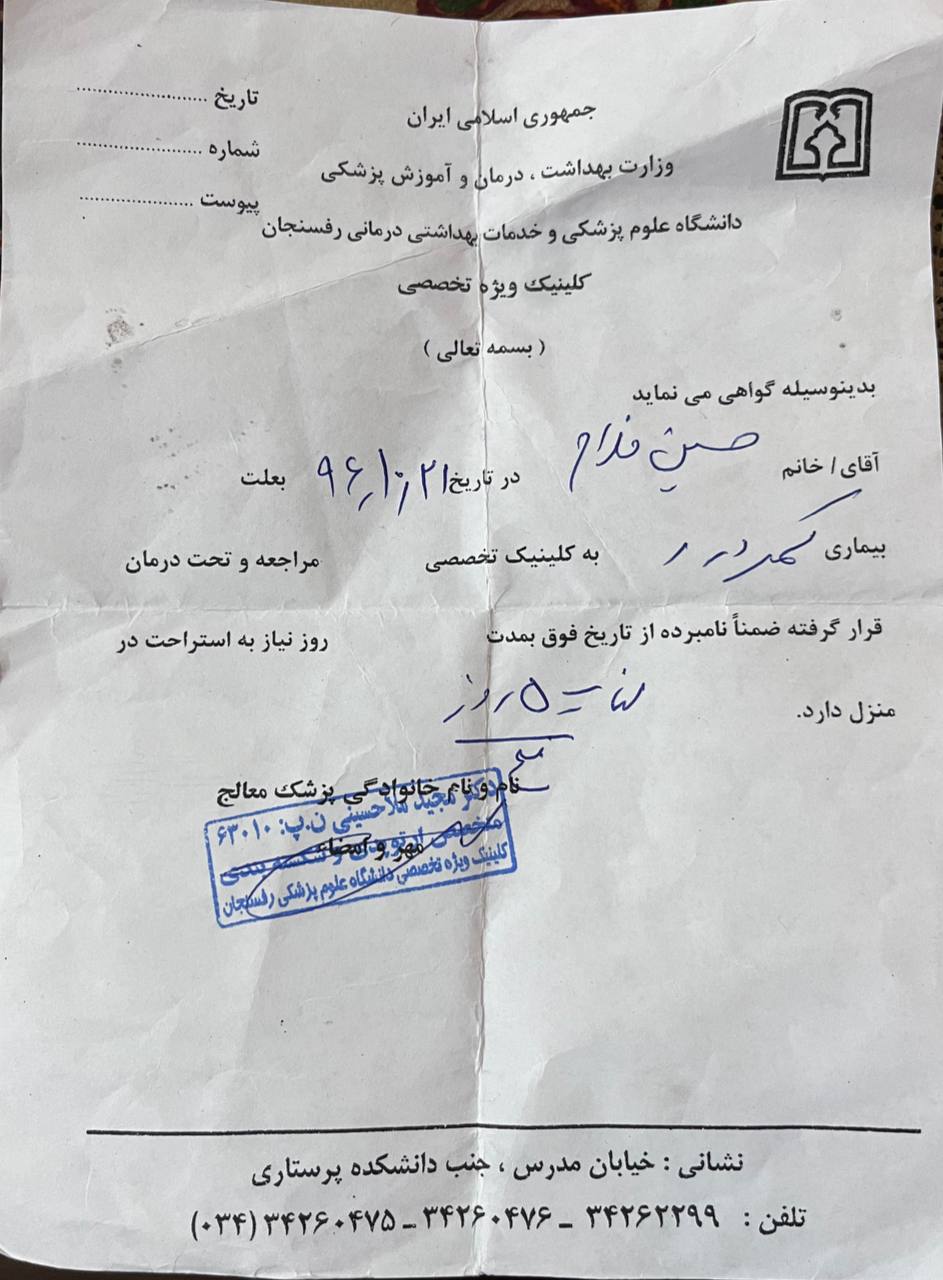 جمهوری اسلامی ایران
وزارت بهداشت ، درمان و آموزش پزشکی
دانشگاه علوم پزشکی و خدمات بهداشتی درمانی رفسنجان
کلینیک ویژه تخصصی
تاریخ ........................
شماره ........................
پیوست ......................
( بسمه تعالی )
بدینوسیله گواهی می نماید
آقای/ خانم حسین فلاح در تاریخ ۹۶,۱۰,۲۱ بعلت
بیماری کمردرد به کلینیک تخصصی مراجعه و تحت درمان
قرار گرفته ضمناً نامبرده از تاریخ فوق بمدت روز نیاز به استراحت در
منزل دارد.
۵ روز
نام و نام خانوادگی پزشک معالج
مهر و امضاء
دکتر مجید ملاحسینی ن.پ: ۶۳۰۱۰
متخصص ارتوپدی و شکسته بندی
کلینیک ویژه تخصصی دانشگاه علوم پزشکی رفسنجان
نشانی : خیابان مدرس ، جنب دانشکده پرستاری
تلفن : ۳۴۲۶۲۲۹۹ ـ ۳۴۲۶۰۴۷۶ ـ ۳۴۲۶۰۴۷۵ (۰۳۴)